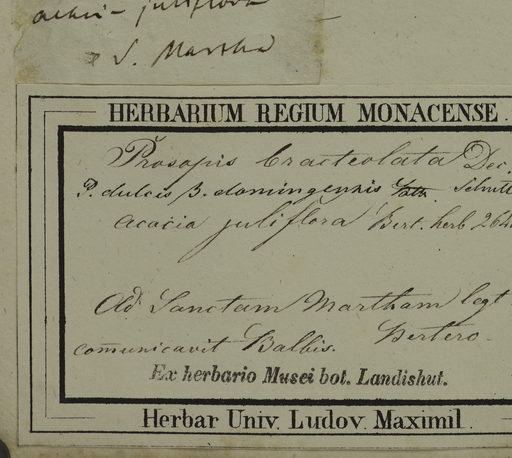 juliflora
S. Martha
HERBARIUM REGIUM MONACENSE.
Prosopis bracteolata Dec.
P. dulcis β. domingensis
Acacia juliflora Bert. herb
Ad Sanctam Martham legt
Bertero.
comunicavit Balbis.
Ex herbario Musei bot. Landishut.
Herbar Univ. Ludov. Maximil.